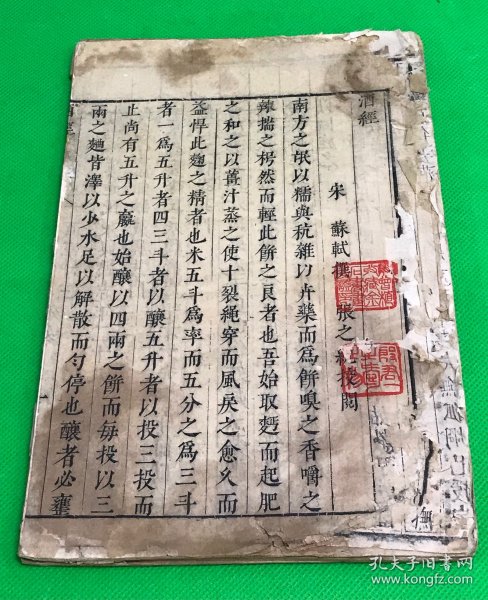 酒經
宋 蘇軾撰 張之
南方之氓以糯與秔雜以卉藥而為餅嗅之香嚼之
辣揣之枵然而輕此餅之良者也吾始取麪而起肥
之和之以薑汁蒸之使十裂繩穿而風戾之愈久而
益悍此麴之精者也米五斗為率而五分之為三斗
者一為五升者四三斗者以釀五升者以投三投而
止尚有五升之贏也始釀以四兩之餅而每投以三
兩之麯皆澤以少水足以解散而勻停也釀者必甕
孔夫子旧书网
kongfz.com